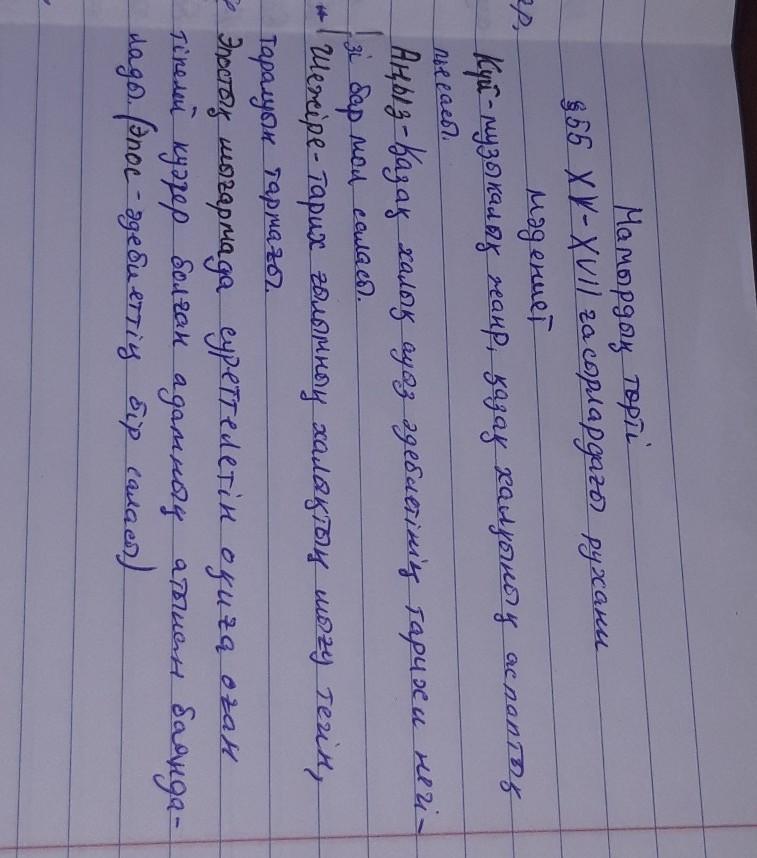 Мамырдың төрті
§55 XV-XVII ғасырлардағы рухани
мәдениеті
Күй-музыкалық жанр, қазақ халқының аспаптық
пьесасы.
Аңыз-Қазақ халық ауыз әдебиетінің тарихи негі-
зі бар мол саласы.
Шежіре-тарих ғылымның халықтың шығу тегін,
таралуын тармағы.
Эпостың шығармада суреттелетін оқиға оған
тікелей куәгер болған адамның атынан баянда-
лады. (Эпос-әдебиеттің бір саласы)